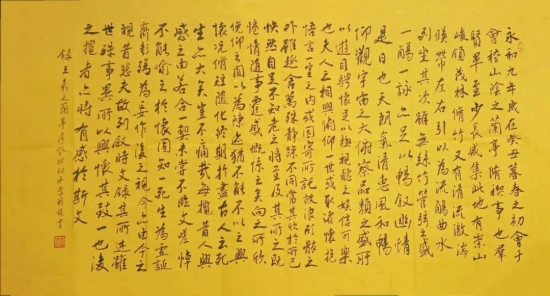 永和九年歲在癸丑暮春之初會于
會稽山陰之蘭亭脩禊事也群
賢畢至少長咸集此地有崇山
峻領茂林脩竹又有清流激湍
暎帶左右引以為流觴曲水
列坐其次雖無絲竹管弦之盛
一觴一詠亦足以暢敘幽情
是日也天朗氣清惠風和暢
仰觀宇宙之大俯察品類之盛所
以遊目騁懷足以極視聽之娛信可樂
也夫人之相與俯仰一世或取諸懷抱
悟言一室之內或因寄所託放浪形骸之
外雖趣舍萬殊靜躁不同當其欣於所己
怏然自足不知老之將至及其所之既
惓情隨事遷感慨係之矣向之所欣
俛仰之間以為陳迹猶不能不以之興
懷況脩短隨化終期於盡古人云死
生亦大矣豈不痛哉每攬昔人興
感之由若合一契未嘗不臨文嗟悼
不能喻之於懷固知死生為虛誕
齊彭殤為妄作後之視今亦由今之
視昔悲夫故列敘時文錄其所述雖
世殊事異所以興懷其致一也後
之攬者亦將有感於斯文
錄王羲之蘭亭序癸卯初冬書